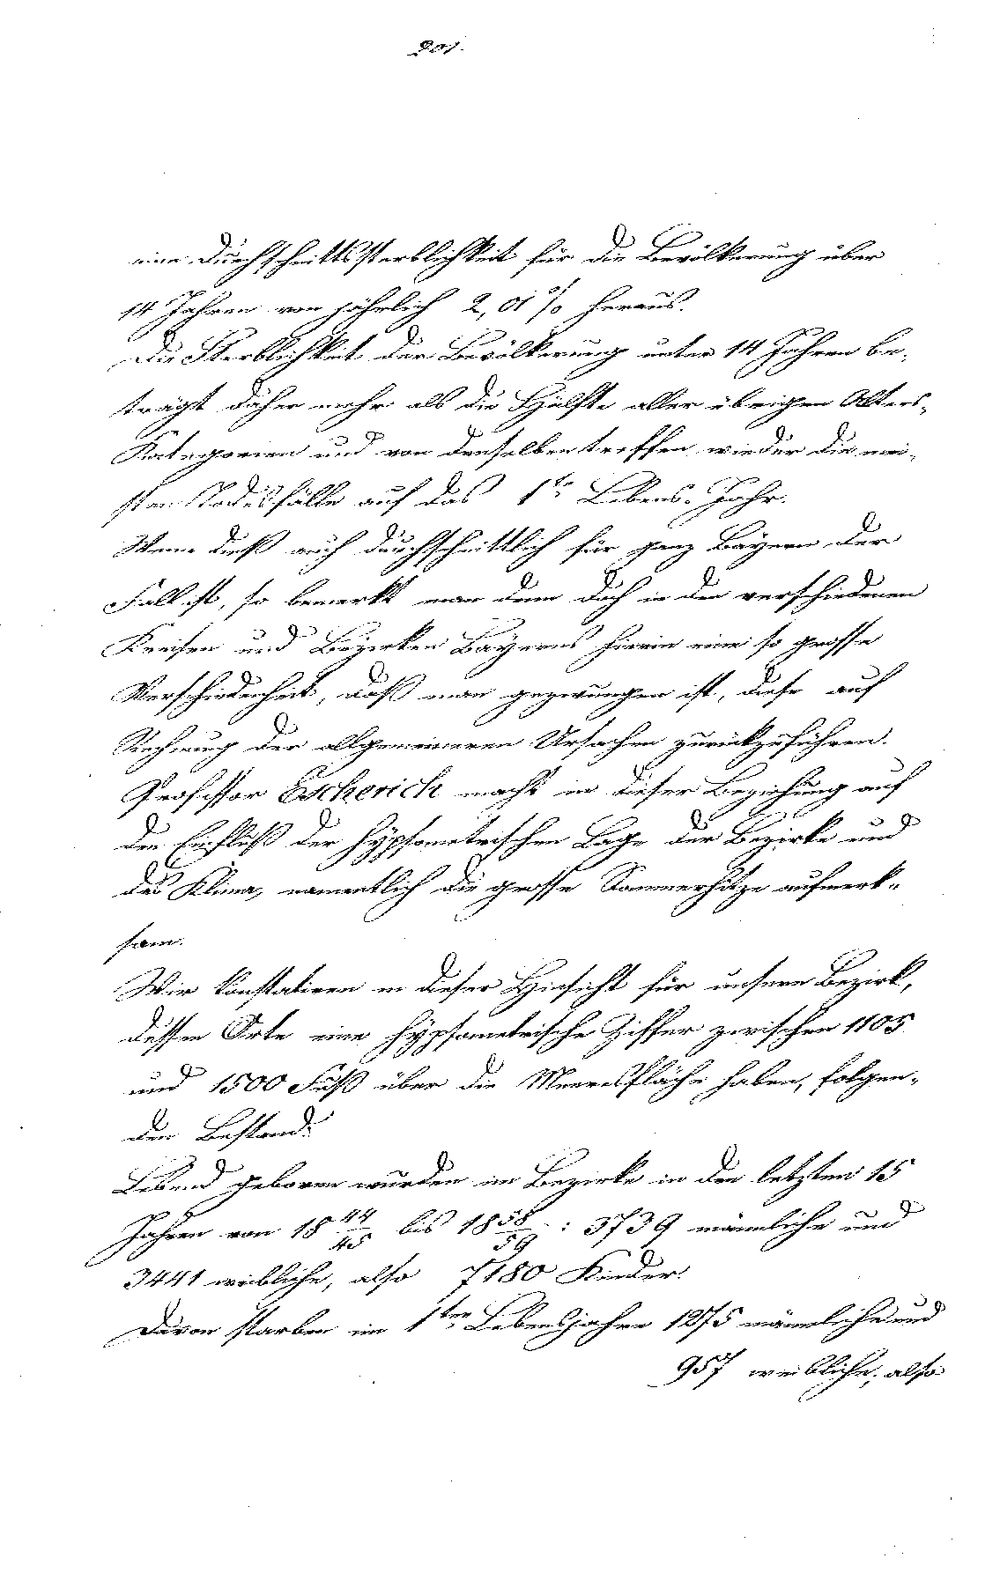 201.
eine Durchschnittssterblichkeit für die Bevölkerung über
14 Jahren von jährlich 2,01 % heraus.
Die Sterblichkeit der Bevölkerung unter 14 Jahren be-
trägt daher mehr als die Hälfte aller übrigen Alters-
Kategorien und von denselben treffen wieder die mei-
sten Todesfälle auf das 1te Lebens-Jahr.
Wenn dieß auch durchschnittlich für ganz Bayern der
Fall ist, so bemerkt man denn doch in den verschiedenen
Kreisen und Bezirken Bayerns hierin eine so grosse
Verschiedenheit, daß man gezwungen ist, diese auf
Rechnung der allgemeineren Ursachen zurückzuführen.
Professor Escherich macht in dieser Beziehung auf
den Einfluß der hypsometrischen Lage der Bezirke und
das Klima, namentlich die grosse Sommerhitze aufmerk-
sam.
Wir konstatiren in dieser Hinsicht für unsern Bezirk,
dessen Orte eine hypsometrische Ziffer zwischen 1105
und 1500 Fuß über die Meeresfläche haben, folgen-
den Bestand:
Lebend geboren wurden im Bezirke in den letzten 15
Jahren von 18 44/45 bis 18 58/59 : 3739 männliche und
3441 weibliche, also 7180 Kinder.
Davon starben im 1ten Lebensjahre 1275 männliche und
957 weibliche, also